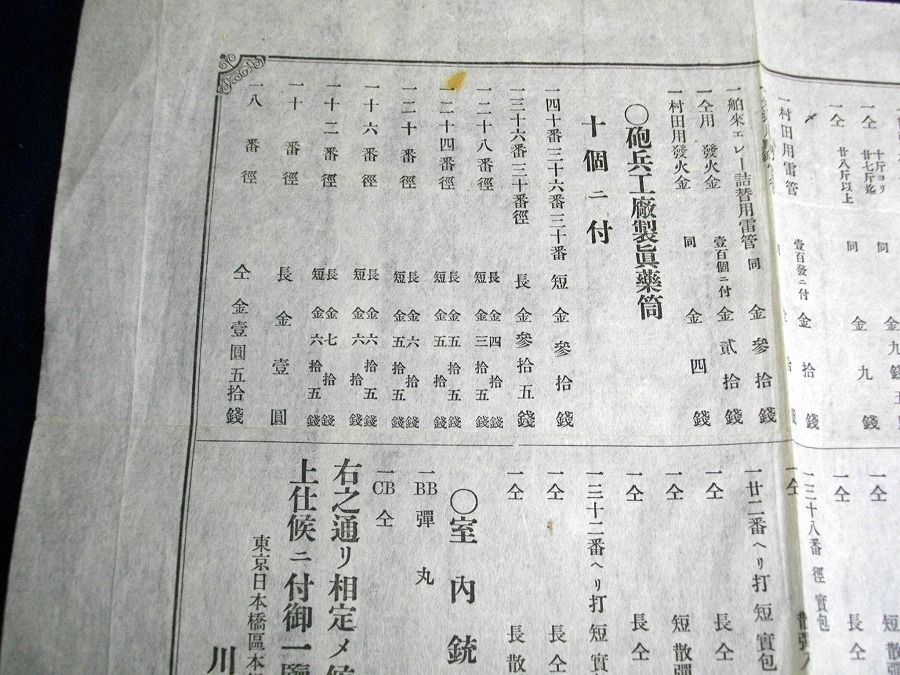 一仝 廿八斤以上 同 金九錢
一村田用雷管 壹百發ニ付 金 拾 錢
一舶來エレー詰替用雷管 同 金參拾錢
一仝用 發火金 壹百個ニ付 金貳拾錢
一村田用發火金 同 金四錢
〇砲兵工廠製眞藥筒
十個ニ付
一四十番三十六番三十番 短 金參拾錢
一三十六番三十番徑 長 金參拾五錢
一二十八番徑 長 金四拾錢 短 金三拾五錢
一二十四番徑 長 金五拾五錢 短 金五拾錢
一二十番徑 長 金六拾錢 短 金五拾五錢
一十六番徑 長 金六拾五錢 短 金六拾錢
一十二番徑 長 金七拾錢 短 金六拾五錢
一十番徑 長 金壹圓
一八番徑 仝 金壹圓五拾錢
一仝 短 散彈
一仝 長 仝
一三十八番徑實包 散彈入
一仝
一廿二番ヘリ打 短 實包
一仝 長 仝
一仝 短 散彈
一仝 長 仝
一三十二番ヘリ打 短 實
一仝 長 仝
一仝 長 散
〇室内銃
一BB彈丸
一CB仝
右之通リ相定メ候
上仕候ニ付御一覽
東京日本橋區本
川